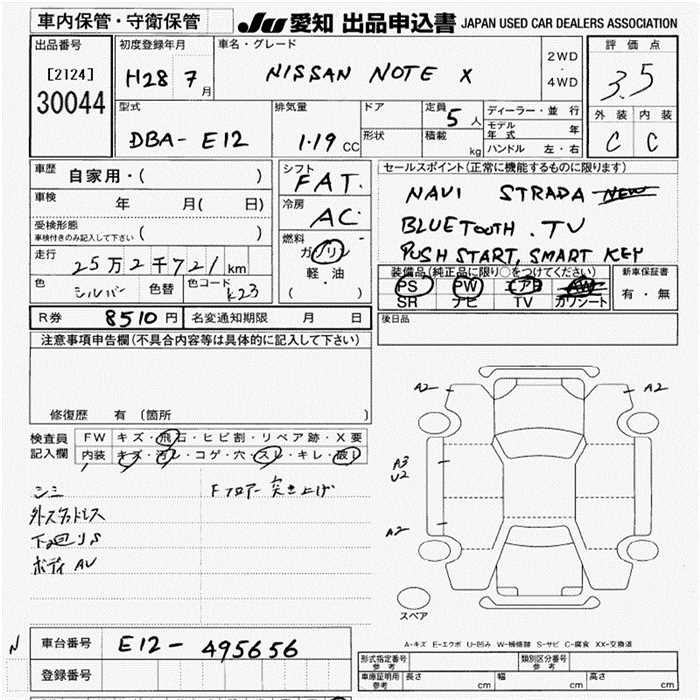 車内保管・守衛保管
JU 愛知 出品申込書 JAPAN USED CAR DEALERS ASSOCIATION
出品番号 初度登録年月 車名・グレード 評価点
[2124]
30044
H28 7月
NISSAN NOTE X
2WD
・
4WD
3.5
型式 排気量 ドア 定員 5人 ディーラー・並 行
外装 内装
DBA-E12 1.19 CC
形状 積載 kg
モデル年式 年
ハンドル 左・右
C C
車歴 自家用・( )
シフト FAT.
セールスポイント(正常に機能するものに限ります)
車検 年 月( 日)
冷房 AC
NAVI STRADA NEW
受検形態
車検付きのみ記入して下さい ( )
燃料 ガソリン
BLUETOOTH . TV
走行 25万2千721km
軽・油
PUSH START, SMART KEY
色 シルバー 色替 色コード K23
( ・ )
装備品(純正品に限り○をつけてください) 新車保証書
PS PW エアB AW
SR ナビ TV カワシート
有・無
R券 8510円 名変通知期限 月 日
後日品
注意事項申告欄(不具合内容等は具体的に記入して下さい)
修復歴 有 (箇所 )
検査員 FW キズ・飛石・ヒビ割・リペア跡・X要
記入欄 内装 キズ・汚レ・コゲ・穴・スレ・キレ・破レ
シミ
Fフロアー突き上げ
外スタッドレス
下廻りS
ボディAU
A2 A2
A3
U2
A2
スペア
A-キズ E-エクボ U-凹み W-補修跡 S-サビ C-腐食 XX-交換済
N
車台番号 E12-495656
登録番号
形式指定番号 参考 類別区分番号 参考
車庫証明用 参考 長さ cm 幅 cm 高さ cm